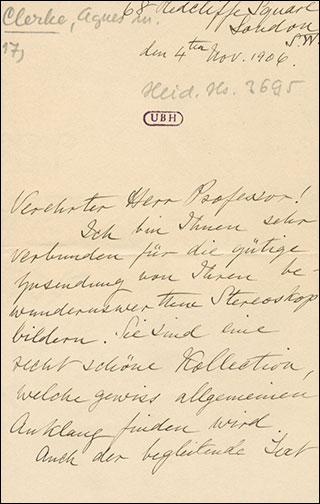 Clerke, Agnes M.
17)
68 Redcliffe Square
London
S.W.
den 4ten Nov. 1906.
Heid. Hs. 3695
UBH
Verehrter Herr Professor!
Ich bin Ihnen sehr
verbunden für die gütige
Zusendung von Ihren be-
wundernswerthen Stereoskop
bildern. Sie sind eine
recht schöne Kollection,
welche gewiss allgemeinen
Anklang finden wird.
Auch der begleitende Text